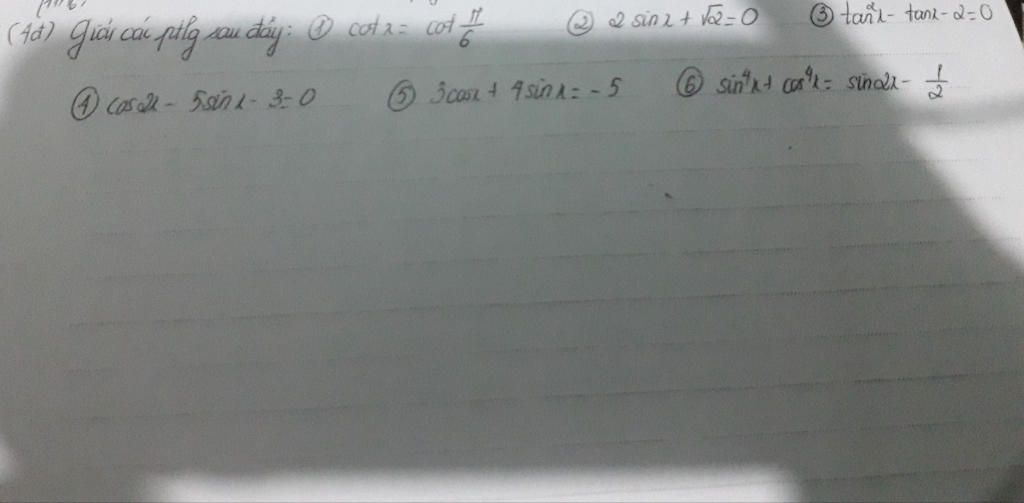 (4đ) Giải các ptlg sau đây: ① cot x = cot π/6 ② 2 sin x + √2 = 0 ③ tan²x - tan x - 2 = 0
④ cos2x - 5sin x - 3 = 0 ⑤ 3cos x + 4 sin x = - 5 ⑥ sin⁴x + cos⁴x = sin2x - 1/2